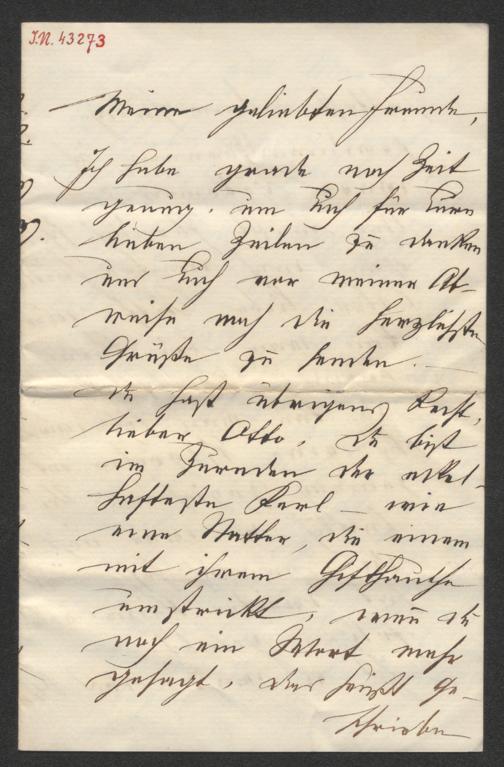 I.N. 43273
Meine geliebten Freunde,
Ich habe grade noch Zeit
genug, um Euch für Eure
lieben Zeilen zu danken
und Euch vor meiner Ab-
reise noch die herzlichsten
Grüße zu senden. —
Du hast übrigens Recht,
lieber Otto, Du bist
im der ekel-
hafteste Kerl — wie
eine Natter, die einem
mit ihrem Gifthauche
umstrickt, wenn Du
noch ein Wort mehr
gesagt, das heißt ge-
schrieben